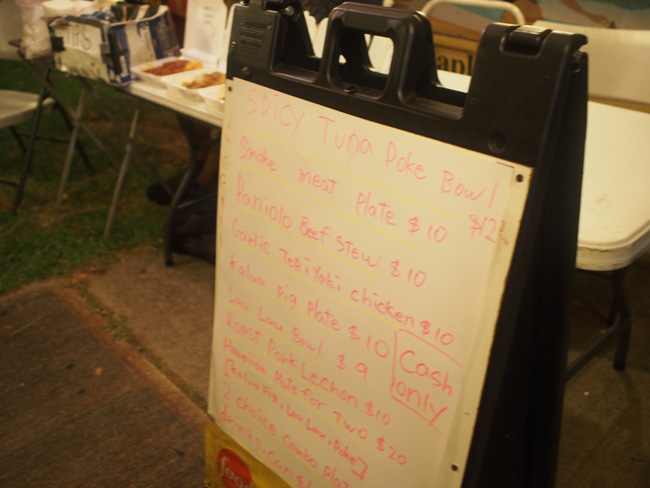 TIPS
SPICY Tuna Poke Bowl
$12
Smoke meat plate $10
Paniolo Beef Stew $10
Garlic Teriyaki chicken $10
Kalua pig plate $10
Lau Lau Bowl $9
Cash only
Roast Pork Lechon $10
Hawaiian Plate for Two $20
[Kalua Pig, Lau Lau, Poke]
2 choice combo plat
drinks
foo